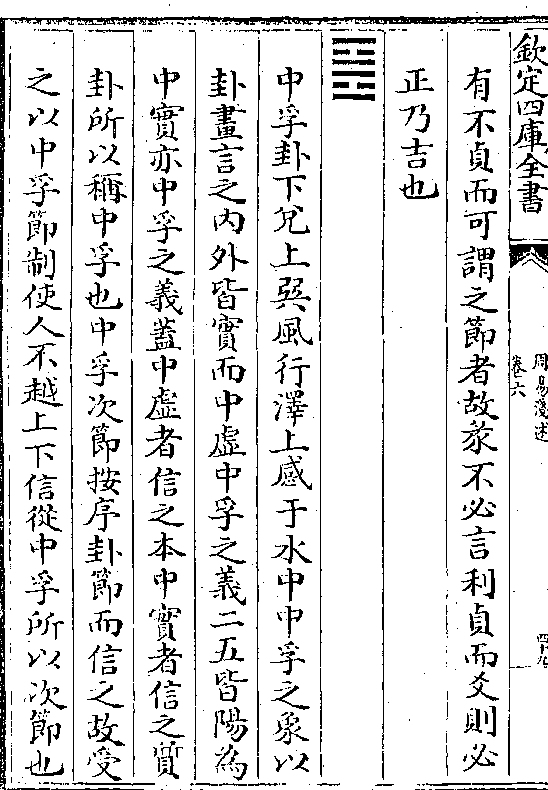 欽定四庫全書
周易淺述
卷六
有不貞而可謂之節者故彖不必言利貞而爻則必
正乃吉也
中孚卦下兌上巽風行澤上感于水中中孚之象以
卦畫言之内外皆實而中虚中孚之義二五皆陽為
中實亦中孚之義蓋中虚者信之本中實者信之質
卦所以稱中孚也中孚次節按序卦節而信之故受
之以中孚節制使人不越上下信從中孚所以次節也